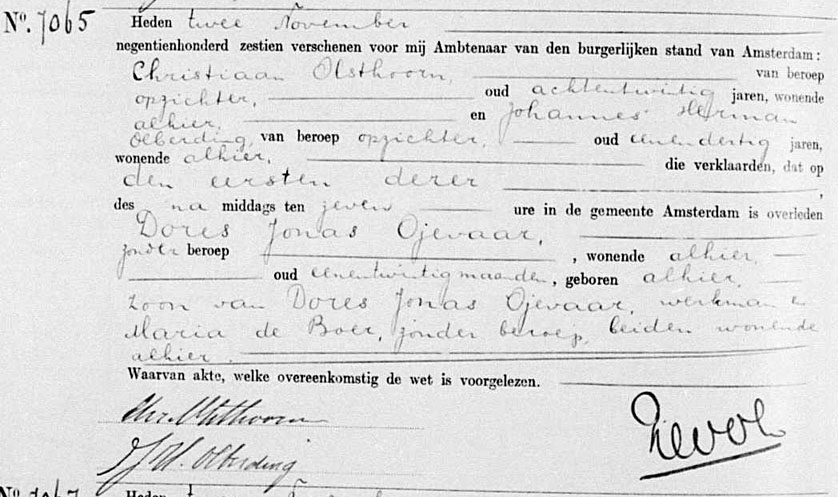 No. 7065 Heden twee November
negentienhonderd zestien verschenen voor mij Ambtenaar van den burgerlijken stand van Amsterdam:
Christiaan Olsthoorn, van beroep
opzichter, oud achtentwintig jaren, wonende
alhier, en Johannes Herman
Olberding, van beroep opzichter, oud eenendertig jaren,
wonende alhier, die verklaarden, dat op
den eersten dezer,
des na middags ten zeven ure in de gemeente Amsterdam is overleden
Dores Jonas Ojevaar,
zonder beroep, wonende alhier,
oud eenentwintig maanden, geboren alhier,
zoon van Dores Jonas Ojevaar, werkman en
Maria de Boer, zonder beroep, beiden wonende
alhier.
Waarvan akte, welke overeenkomstig de wet is voorgelezen.
Chr. Olsthoorn
J H. Olberding
No. Heden